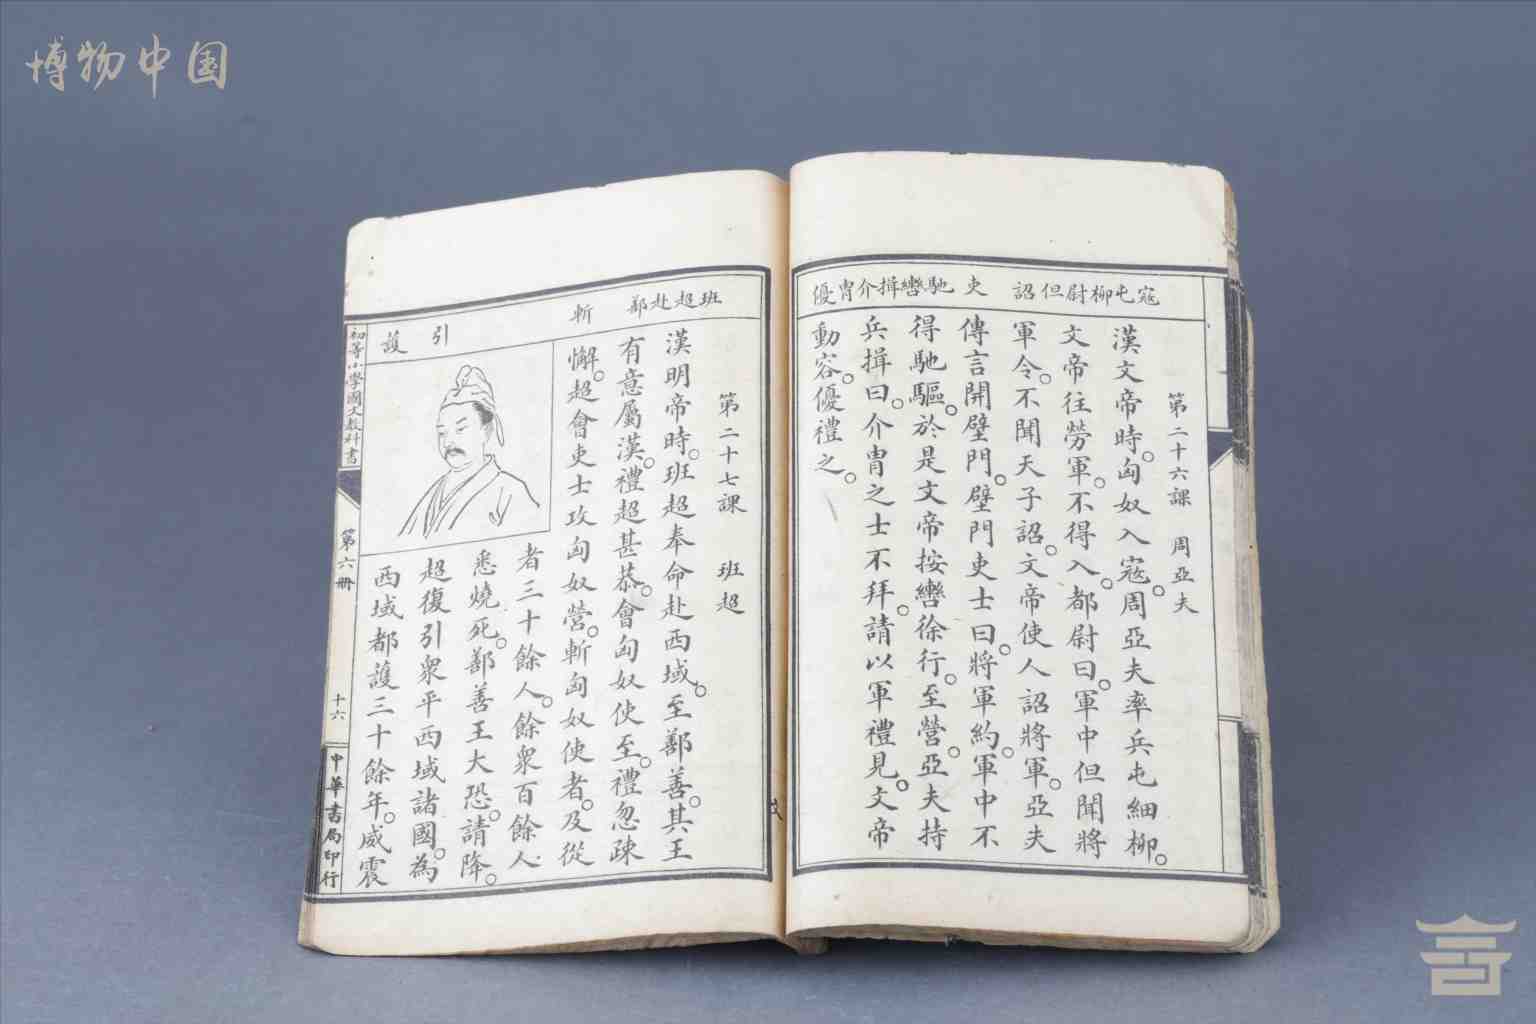 博物中国
寇屯柳尉但詔 吏 馳轡揖介冑優
第二十六課 周亞夫
漢文帝時。匈奴入寇。周亞夫率兵屯細柳。
文帝往勞軍。不得入。都尉曰。軍中但聞將
軍令。不聞天子詔。文帝使人詔將軍。亞夫
傳言開壁門。壁門吏士曰。將軍約。軍中不
得馳驅。於是文帝按轡徐行。至營。亞夫持
兵揖曰。介冑之士不拜。請以軍禮見。文帝
動容。優禮之。
班超赴鄯 斬 引 護
第二十七課 班超
漢明帝時。班超奉命赴西域。至鄯善。其王
有意屬漢。禮超甚恭。會匈奴使至。禮忽疎
懈。超會吏士攻匈奴營。斬匈奴使者。及從
者三十餘人。餘衆百餘人
悉燒死。鄯善王大恐。請降。
超復引衆平西域諸國。為
西域都護三十餘年。威震
初等小學國文教科書
第六冊
十六
中華書局印行